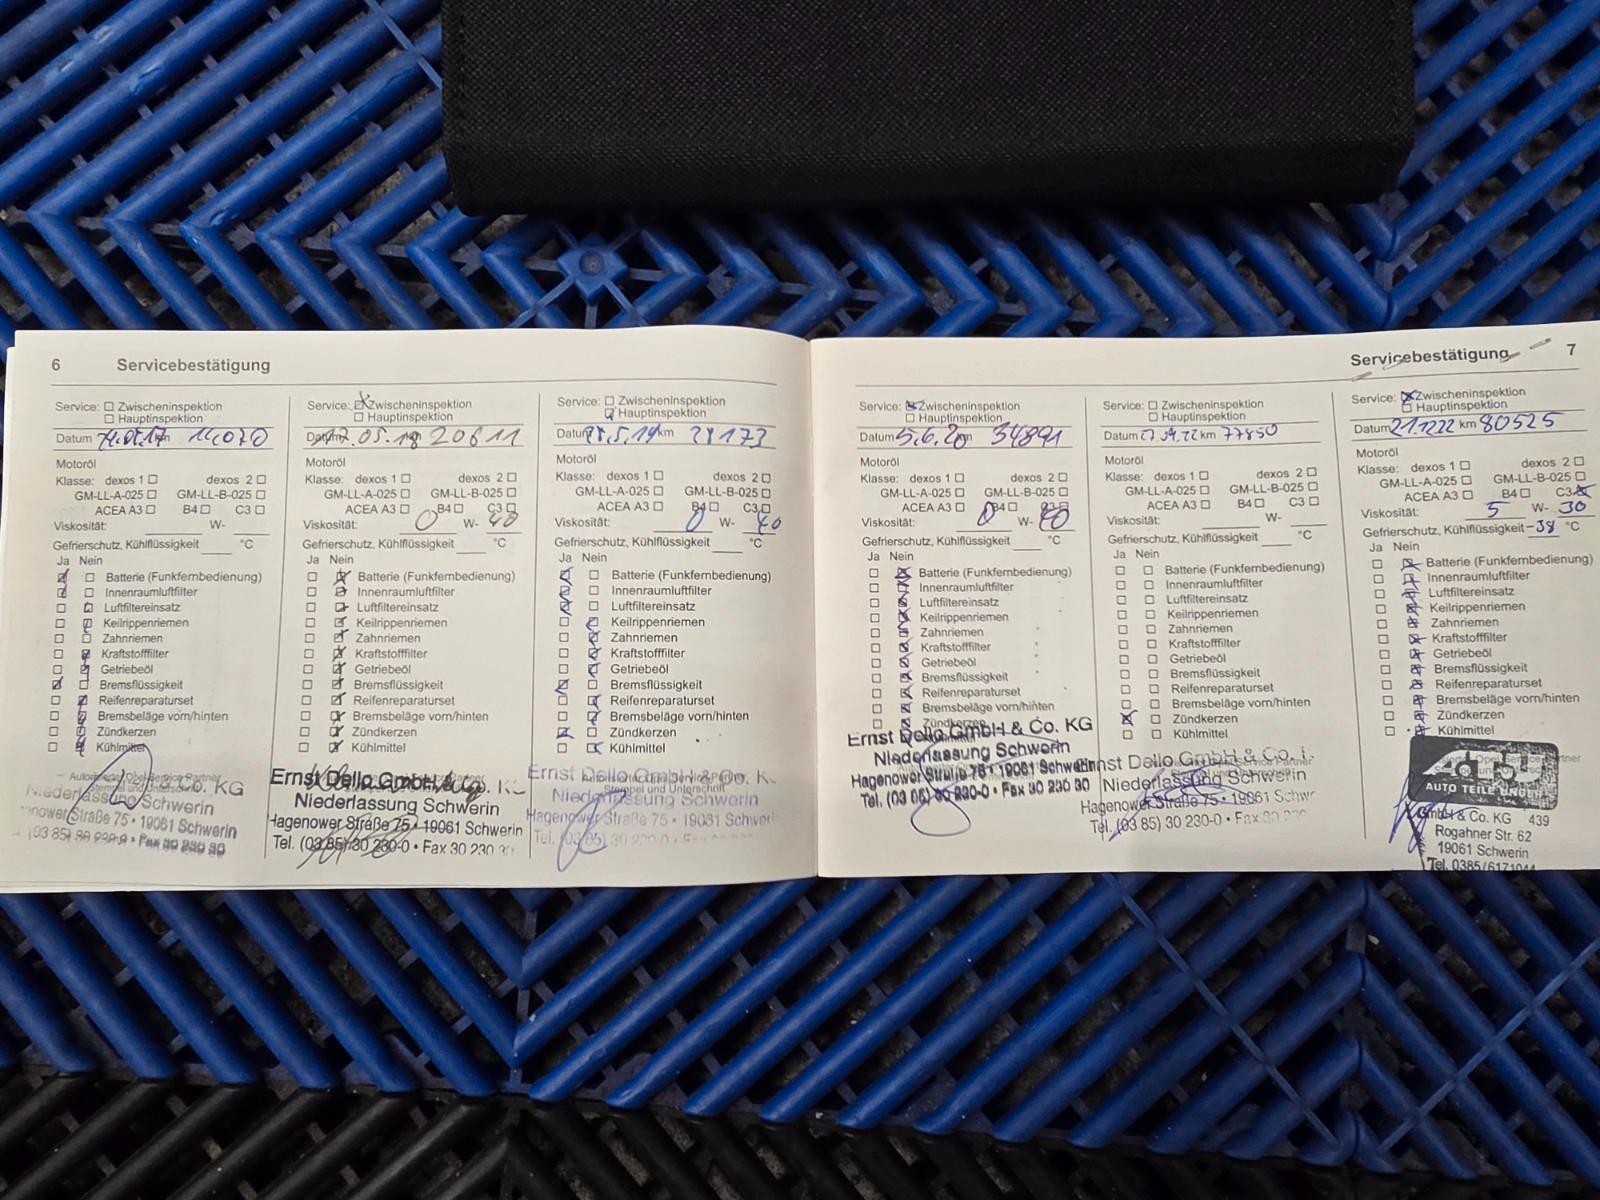 6 Servicebestätigung
Service: Zwischeninspektion
Hauptinspektion
Datum km 14070
Motoröl
Klasse: dexos 1 dexos 2
GM-LL-A-025 GM-LL-B-025
ACEA A3 B4 C3
Viskosität: W-
Gefrierschutz, Kühlflüssigkeit °C
Ja Nein
Batterie (Funkfernbedienung)
Innenraumluftfilter
Luftfiltereinsatz
Keilrippenriemen
Zahnriemen
Kraftstofffilter
Getriebeöl
Bremsflüssigkeit
Reifenreparaturset
Bremsbeläge vorn/hinten
Zündkerzen
Kühlmittel
Autorisierter Opel Service Partner
Stempel und Unterschrift
Co. KG
Niederlassung Schwerin
Hagenower Straße 75 • 19061 Schwerin
(03 85) 30 230-0 • Fax 30 230 30
Service: Zwischeninspektion
Hauptinspektion
Datum .05.18 20611
Motoröl
Klasse: dexos 1 dexos 2
GM-LL-A-025 GM-LL-B-025
ACEA A3 B4 C3
Viskosität: 0 W- 40
Gefrierschutz, Kühlflüssigkeit °C
Ja Nein
Batterie (Funkfernbedienung)
Innenraumluftfilter
Luftfiltereinsatz
Keilrippenriemen
Zahnriemen
Kraftstofffilter
Getriebeöl
Bremsflüssigkeit
Reifenreparaturset
Bremsbeläge vorn/hinten
Zündkerzen
Kühlmittel
Ernst Dello GmbH & Co. K
Niederlassung Schwerin
Hagenower Straße 75 • 19061 Schwerin
Tel. (03 85) 30 230-0 • Fax 30 230 30
Service: Zwischeninspektion
Hauptinspektion
Datum .5.19 km 28173
Motoröl
Klasse: dexos 1 dexos 2
GM-LL-A-025 GM-LL-B-025
ACEA A3 B4 C3
Viskosität: 0 W- 40
Gefrierschutz, Kühlflüssigkeit °C
Ja Nein
Batterie (Funkfernbedienung)
Innenraumluftfilter
Luftfiltereinsatz
Keilrippenriemen
Zahnriemen
Kraftstofffilter
Getriebeöl
Bremsflüssigkeit
Reifenreparaturset
Bremsbeläge vorn/hinten
Zündkerzen
Kühlmittel
Stempel und Unterschrift
Ernst Dello GmbH & Co. K
Niederlassung Schwerin
Hagenower Straße 75 • 19061 Schwerin
Tel. (03 85) 30 230-0
Servicebestätigung 7
Service: Zwischeninspektion
Hauptinspektion
Datum 5.6.20 34891
Motoröl
Klasse: dexos 1 dexos 2
GM-LL-A-025 GM-LL-B-025
ACEA A3 B4 C3
Viskosität: 0 W- 40
Gefrierschutz, Kühlflüssigkeit °C
Ja Nein
Batterie (Funkfernbedienung)
Innenraumluftfilter
Luftfiltereinsatz
Keilrippenriemen
Zahnriemen
Kraftstofffilter
Getriebeöl
Bremsflüssigkeit
Reifenreparaturset
Bremsbeläge vorn/hinten
Zündkerzen
Ernst Dello GmbH & Co. KG
Niederlassung Schwerin
Hagenower Straße 75 • 19061 Schwerin
Tel. (03 85) 30 230-0 • Fax 30 230 30
Service: Zwischeninspektion
Hauptinspektion
Datum .22 km 77850
Motoröl
Klasse: dexos 1 dexos 2
GM-LL-A-025 GM-LL-B-025
ACEA A3 B4 C3
Viskosität: W-
Gefrierschutz, Kühlflüssigkeit °C
Ja Nein
Batterie (Funkfernbedienung)
Innenraumluftfilter
Luftfiltereinsatz
Keilrippenriemen
Zahnriemen
Kraftstofffilter
Getriebeöl
Bremsflüssigkeit
Reifenreparaturset
Bremsbeläge vorn/hinten
Zündkerzen
Kühlmittel
Ernst Dello GmbH & Co.
Niederlassung Schwerin
Hagenower Straße 75 • 19061 Schwer
Tel. (03 85) 30 230-0 • Fax 30 230
Service: Zwischeninspektion
Hauptinspektion
Datum 21.12.22 km 80525
Motoröl
Klasse: dexos 1 dexos 2
GM-LL-A-025 GM-LL-B-025
ACEA A3 B4 C3
Viskosität: 5 W- 30
Gefrierschutz, Kühlflüssigkeit -38 °C
Ja Nein
Batterie (Funkfernbedienung)
Innenraumluftfilter
Luftfiltereinsatz
Keilrippenriemen
Zahnriemen
Kraftstofffilter
Getriebeöl
Bremsflüssigkeit
Reifenreparaturset
Bremsbeläge vorn/hinten
Zündkerzen
Kühlmittel
AUTO TEILE UNGER
GmbH & Co. KG 439
Rogahner Str. 62
19061 Schwerin
Tel. 0385/6171044